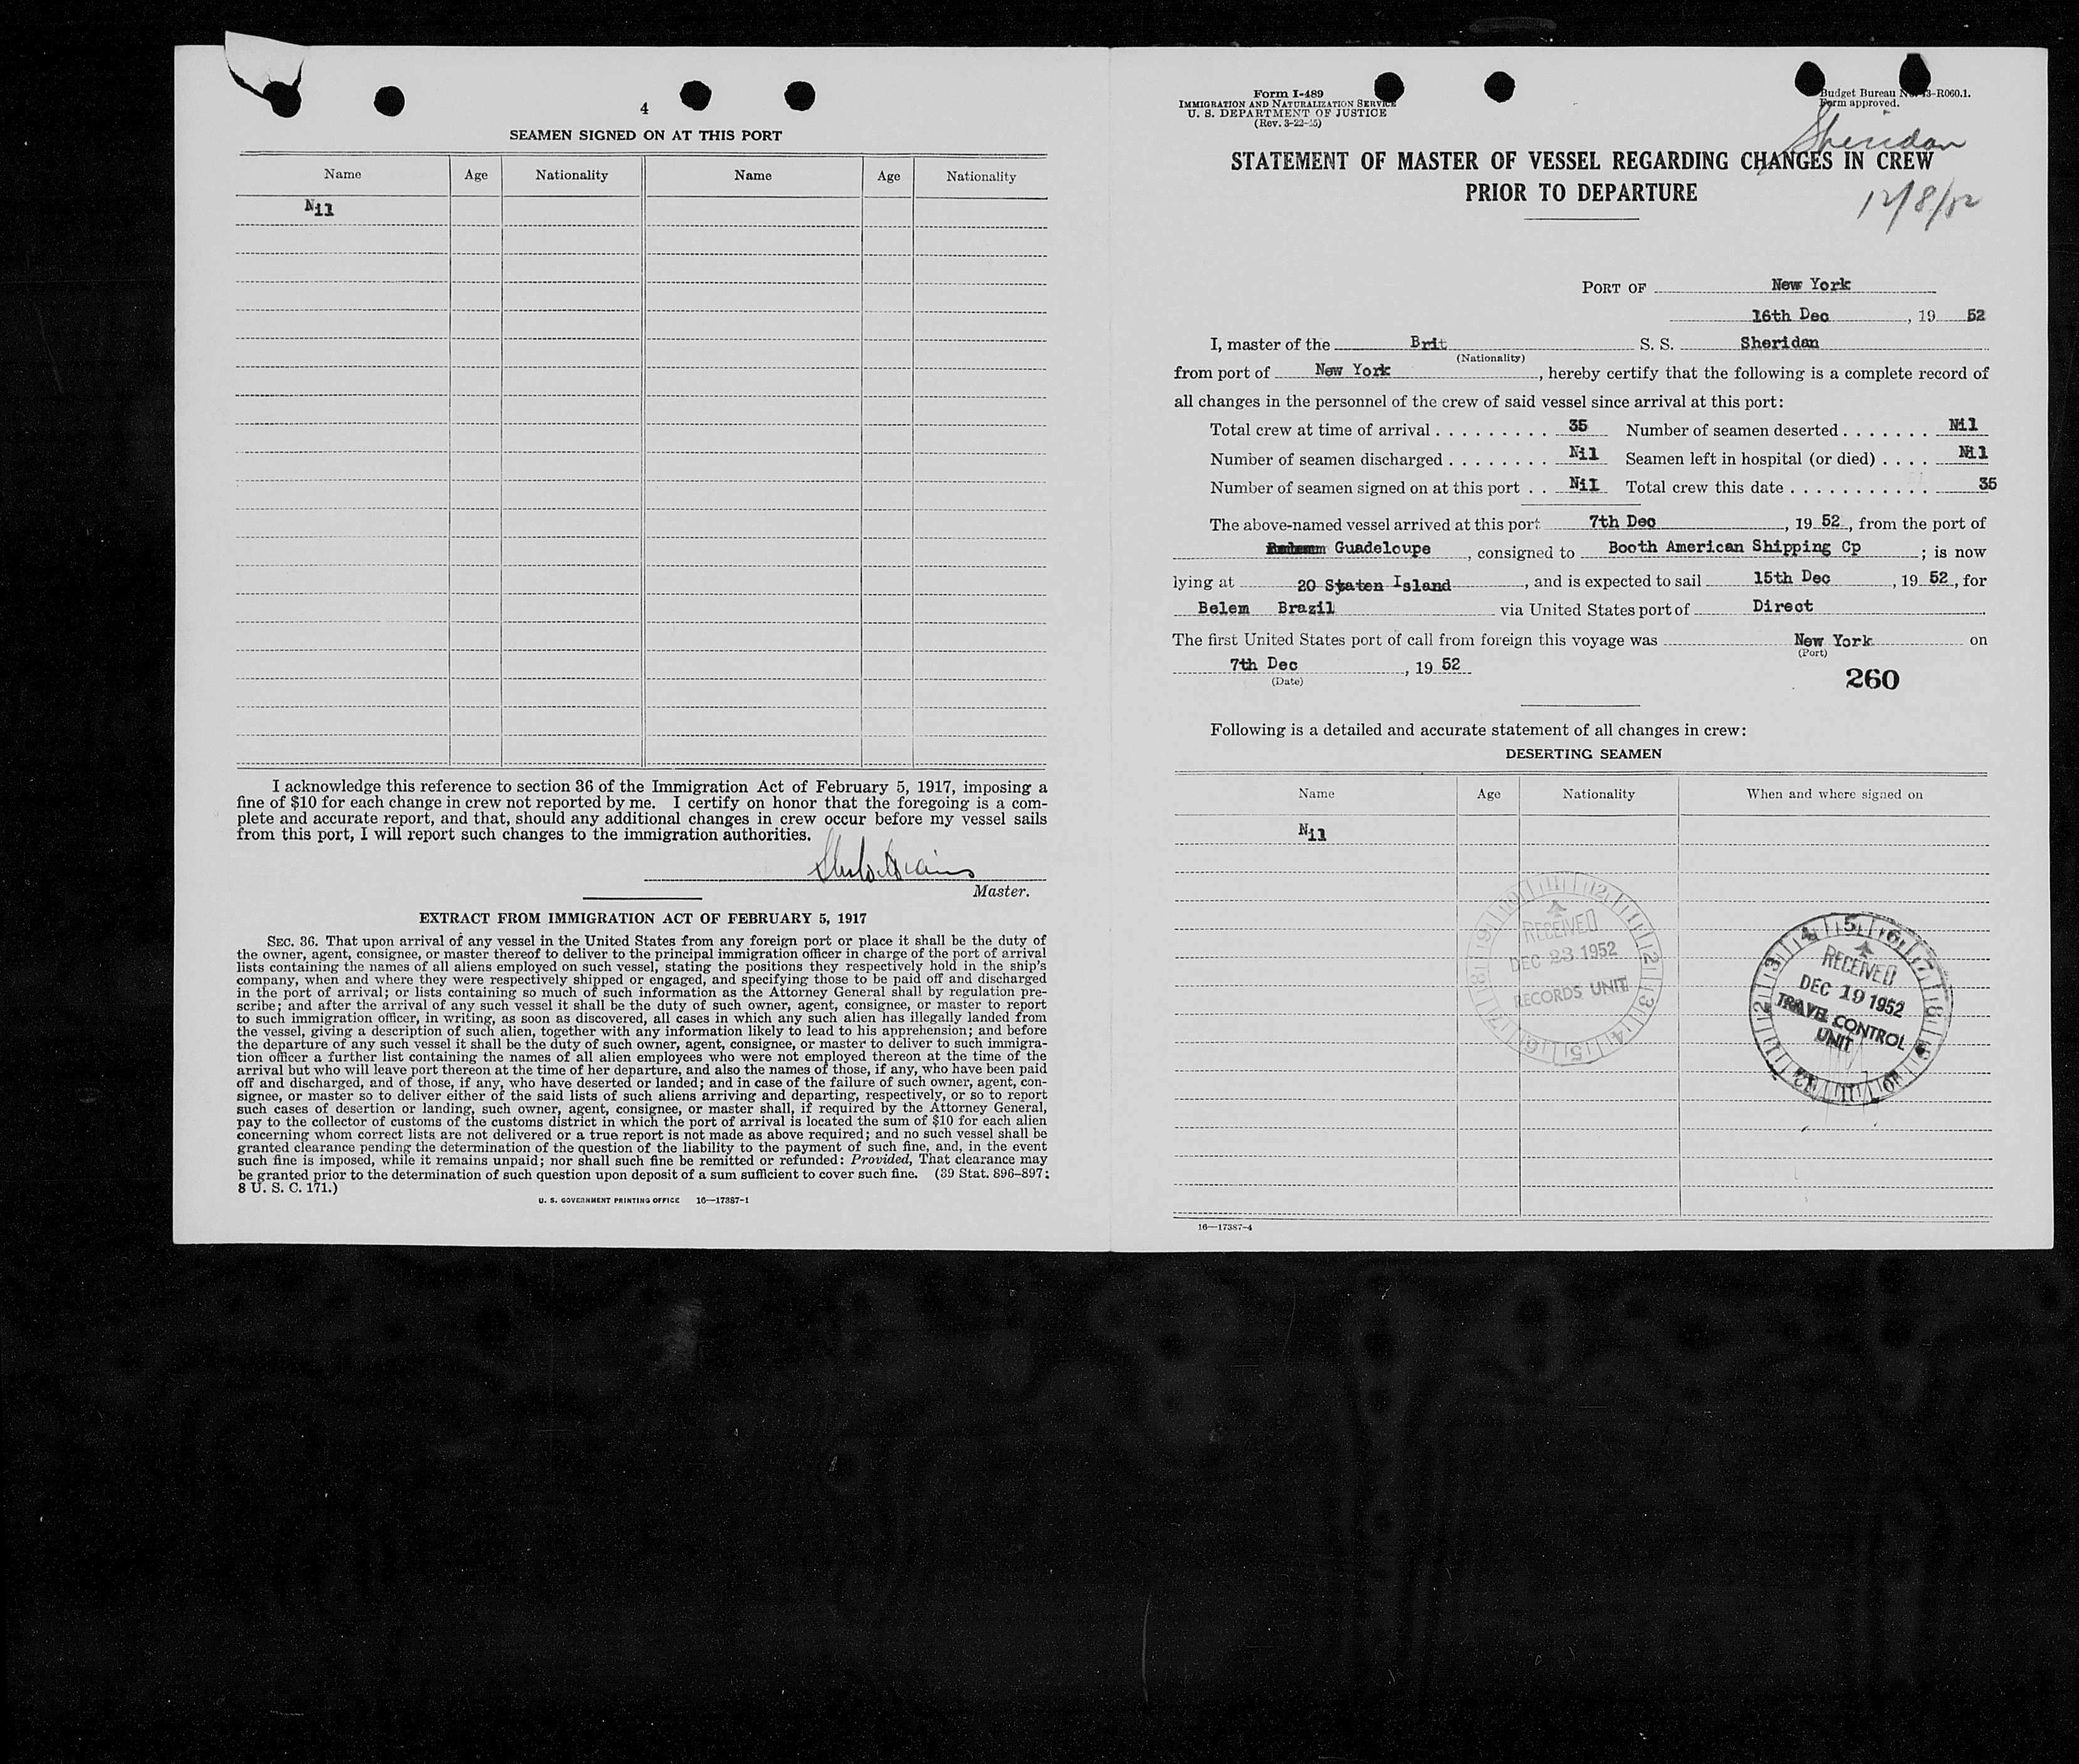 4
SEAMEN SIGNED ON AT THIS PORT
Name Age Nationality Name Age Nationality
Nil
I acknowledge this reference to section 36 of the Immigration Act of February 5, 1917, imposing a
fine of $10 for each change in crew not reported by me. I certify on honor that the foregoing is a com-
plete and accurate report, and that, should any additional changes in crew occur before my vessel sails
from this port, I will report such changes to the immigration authorities.
Master.
EXTRACT FROM IMMIGRATION ACT OF FEBRUARY 5, 1917
SEC. 36. That upon arrival of any vessel in the United States from any foreign port or place it shall be the duty of
the owner, agent, consignee, or master thereof to deliver to the principal immigration officer in charge of the port of arrival
lists containing the names of all aliens employed on such vessel, stating the positions they respectively hold in the ship's
company, when and where they were respectively shipped or engaged, and specifying those to be paid off and discharged
in the port of arrival; or lists containing so much of such information as the Attorney General shall by regulation pre-
scribe; and after the arrival of any such vessel it shall be the duty of such owner, agent, consignee, or master to report
to such immigration officer, in writing, as soon as discovered, all cases in which any such alien has illegally landed from
the vessel, giving a description of such alien, together with any information likely to lead to his apprehension; and before
the departure of any such vessel it shall be the duty of such owner, agent, consignee, or master to deliver to such immigra-
tion officer a further list containing the names of all alien employees who were not employed thereon at the time of the
arrival but who will leave port thereon at the time of her departure, and also the names of those, if any, who have been paid
off and discharged, and of those, if any, who have deserted or landed; and in case of the failure of such owner, agent, con-
signee, or master so to deliver either of the said lists of such aliens arriving and departing, respectively, or so to report
such cases of desertion or landing, such owner, agent, consignee, or master shall, if required by the Attorney General,
pay to the collector of customs of the customs district in which the port of arrival is located the sum of $10 for each alien
concerning whom correct lists are not delivered or a true report is not made as above required; and no such vessel shall be
granted clearance pending the determination of the question of the liability to the payment of such fine, and, in the event
such fine is imposed, while it remains unpaid; nor shall such fine be remitted or refunded: Provided, That clearance may
be granted prior to the determination of such question upon deposit of a sum sufficient to cover such fine. (39 Stat. 896–897;
8 U. S. C. 171.)
U. S. GOVERNMENT PRINTING OFFICE 16—17387-1
Form I-489
IMMIGRATION AND NATURALIZATION SERVICE
U. S. DEPARTMENT OF JUSTICE
(Rev. 3-22-45)
Budget Bureau No. 43-R060.1.
Form approved.
Sheridan
STATEMENT OF MASTER OF VESSEL REGARDING CHANGES IN CREW
PRIOR TO DEPARTURE
12/8/52
PORT OF New York
16th Dec, 19 52
I, master of the Brit S. S. Sheridan
(Nationality)
from port of New York, hereby certify that the following is a complete record of
all changes in the personnel of the crew of said vessel since arrival at this port:
Total crew at time of arrival . . . . . . . . . 35 Number of seamen deserted . . . . . . . Nil
Number of seamen discharged . . . . . . . . Nil Seamen left in hospital (or died) . . . . Nil
Number of seamen signed on at this port . . Nil Total crew this date . . . . . . . . . . . 35
The above-named vessel arrived at this port 7th Dec, 19 52, from the port of
Guadeloupe, consigned to Booth American Shipping Cp; is now
lying at 20 Staten Island, and is expected to sail 15th Dec, 19 52, for
Belem Brazil via United States port of Direct
The first United States port of call from foreign this voyage was New York on
(Port)
7th Dec, 19 52
(Date)
260
Following is a detailed and accurate statement of all changes in crew:
DESERTING SEAMEN
Name Age Nationality When and where signed on
Nil
RECEIVED
DEC 23 1952
RECORDS UNIT
RECEIVED
DEC 19 1952
TRAVEL CONTROL
UNIT
16—17387-4